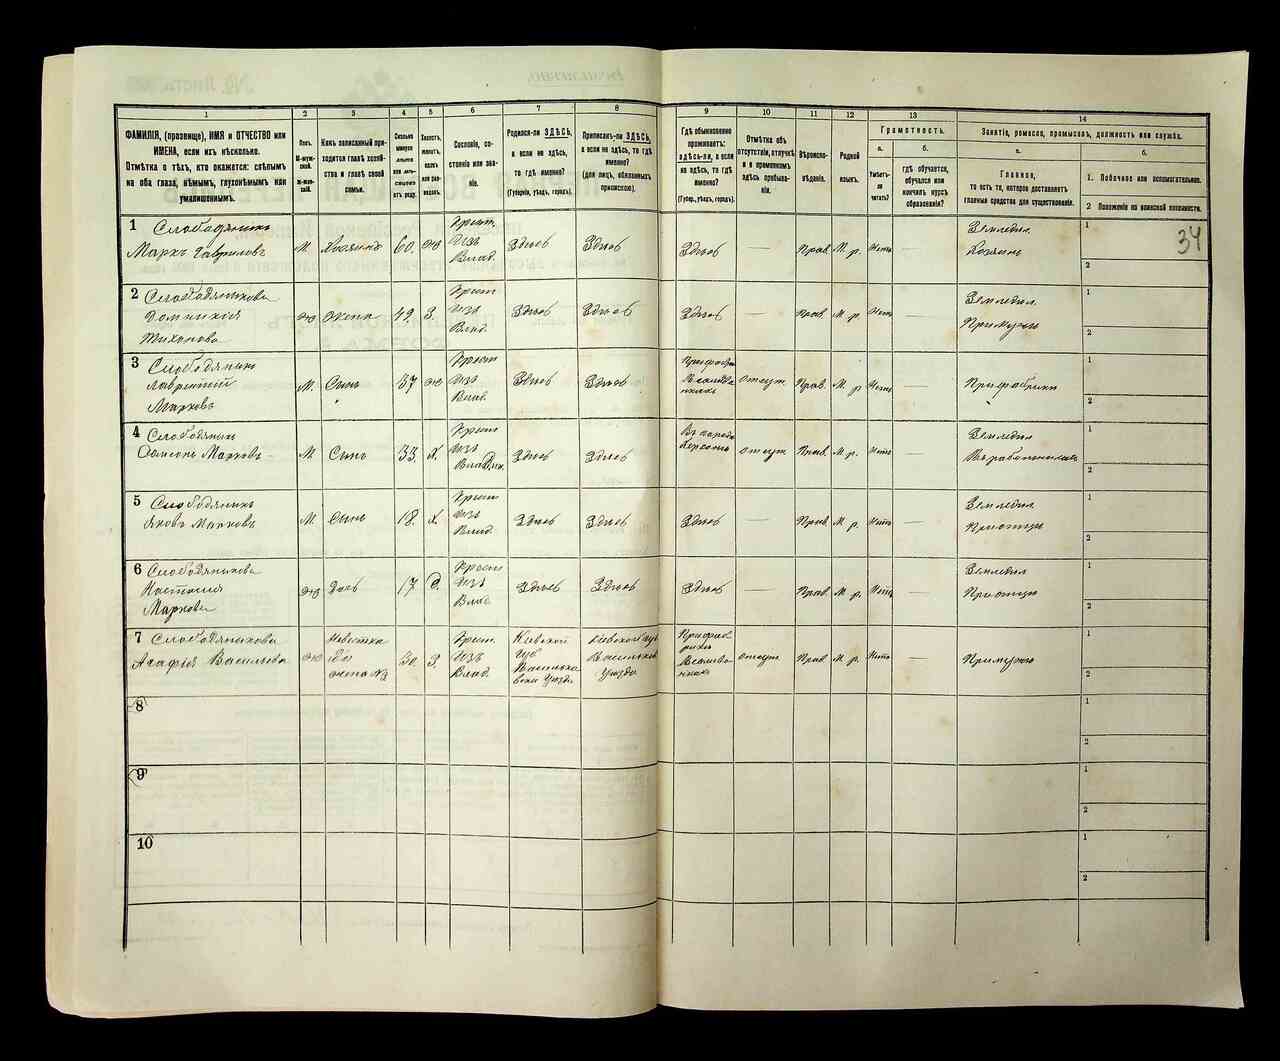 1
2
3
4
5
6
7
8
9
10
11
12
13
14
ФАМИЛІЯ, (прозвище), ИМЯ и ОТЧЕСТВО или
ИМЕНА, если ихъ нѣсколько.
Отмѣтка о тѣхъ, кто окажется: слѣпымъ
на оба глаза, нѣмымъ, глухонѣмымъ или
умалишеннымъ.
Полъ.
М-муж-
ской.
Ж-жен-
скій.
Какъ записанный при-
ходится главѣ хозяй-
ства и главѣ своей
семьи.
Сколько
минуло
лѣтъ
или мѣ-
сяцевъ
отъ роду.
Холостъ,
женатъ,
вдовъ
или раз-
веденъ.
Сословіе, со-
стояніе или зва-
ніе.
Родился-ли ЗДѢСЬ,
а если не здѣсь,
то гдѣ именно?
(Губернія, уѣздъ, городъ).
Приписанъ-ли ЗДѢСЬ,
а если не здѣсь, то гдѣ
именно?
(для лицъ, обязанныхъ
припискою).
Гдѣ обыкновенно
проживаетъ:
здѣсь-ли, а если
не здѣсь, то гдѣ
именно?
(Губерн., уѣздъ, городъ).
Отмѣтка объ
отсутствіи, отлучкѣ
и о временномъ
здѣсь пребыва-
ніи.
Вѣроиспо-
вѣданіе.
Родной
языкъ.
Грамотность.
а.
Умѣетъ-
ли
читать?
б.
гдѣ обучается,
обучался или
кончилъ курсъ
образованія?
Занятіе, ремесло, промыселъ, должность или служба.
а.
Главное,
то есть то, которое доставляетъ
главныя средства для существованія.
б.
1. Побочное или вспомогательное.
2 Положеніе по воинской повинности.
34
1 Слободяникъ
Маркъ Гавриловъ
М.
Хозяинъ
60.
ж
Крест.
Изъ
Влад.
Здѣсь
Здѣсь
Здѣсь
—
Прав.
М. р.
Нетъ
—
Земледел.
Хозяинъ
1
2
2 Слободяникова
Домникія
Тихонова
ж
Жена
49.
З.
Крест
Изъ
Влад.
Здѣсь
Здѣсь
Здѣсь
—
Прав.
М. р.
Нетъ
—
Земледел.
При мужи
1
2
3 Слободяникъ
Лаврентій
Марковъ
М.
Сынъ
37
ж
Крест
Изъ
Влад.
Здѣсь
Здѣсь
отсут
Прав.
М. р.
Нетъ
—
При фабрики
1
2
4 Слободяник
Марковъ
М.
Сынъ
33.
Х.
Крест
Изъ
Здѣсь
Здѣсь
Въ городе
Херсонѣ
отсут
Прав.
М. р.
Нетъ
—
Земледел
1
2
5 Слободяникъ
Яковъ Марковъ
М.
Сынъ
18.
Х.
Крест
Изъ
Влад.
Здѣсь
Здѣсь
Здѣсь
—
Прав.
М. р.
Нетъ
—
Земледел.
При отцу
1
2
6 Слободяникова
Настасия
Маркова
ж
Дочь
17
Д.
Крест
Изъ
Влад.
Здѣсь
Здѣсь
Здѣсь
—
Прав.
М. р.
Нетъ
—
Земледел
При отцу
1
2
7 Слободяникова
Агафія Васильева
ж
Невестка
30.
З.
Крест.
Изъ
Влад.
Киевской
Губ
Васильковски Уезда
Киевской Губ
Васильков
Уезда
отсут
Прав.
М. р.
Нетъ
—
При мужи
1
2
8
1
2
9
1
2
10
1
2